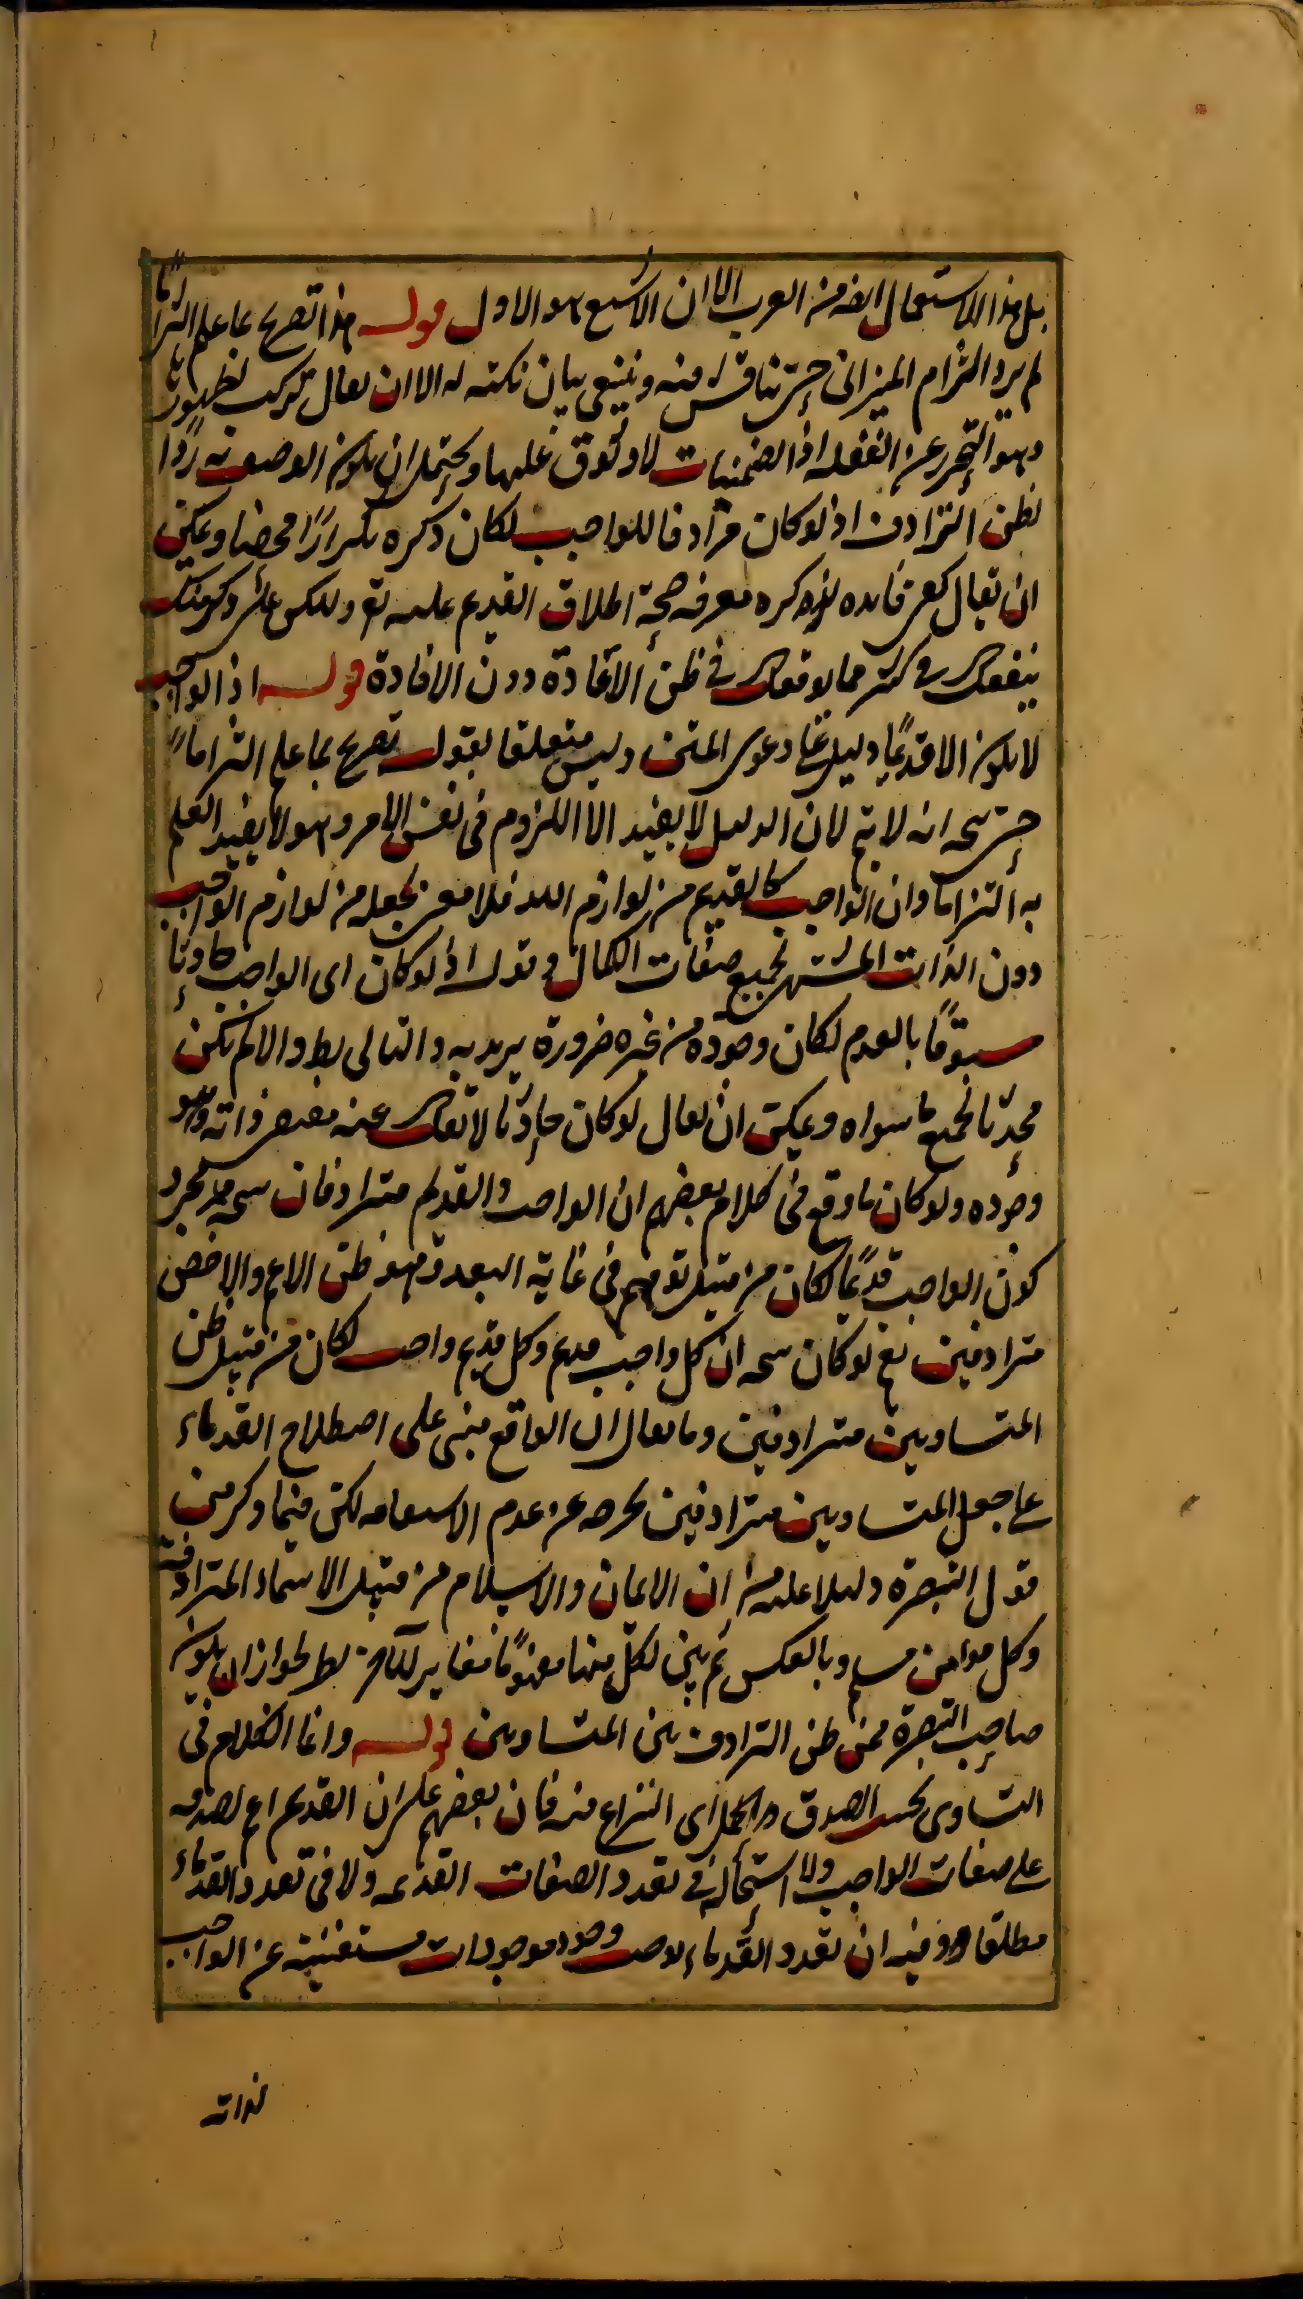 بل هذا الاستعمال ايضا من العرب الا ان الاشيع هو الاول قوله هذا تصريح بما علم التزاما
لم يرد التزام الميزانى حتى يناقش فيه وينبغى بيان نكتة له الا ان يقال تركب لظهورها
وهو التحرز عن الغفلة اذ الضمنيات لا وثوق عليها ويحتمل ان يكون الوصف به ردا
لظن الترادف اذ لو كان مرادفا للواجب لكان ذكره تكرارا محضا ويمكن
ان يقال يكفى فائدة لذكره معرفة صحة اطلاق القديم عليه تع وليكن على ذكر منك
ينفعك فى كثير مما يوقعك فى ظن الاعادة دون الافادة قوله اذ الواجب
لا يكون الا قديما دليل على دعوى المتن وليس متعلقا بقوله تصريح بما علم التزاما
حتى يتجه انه لا يتم لان الدليل لا يفيد الا اللزوم فى نفس الامر وهو لا يفيد العلم
به التزاما وان الواجب كالقديم من لوازم الله فلا معنى لجعله من لوازم الواجب
دون الذات المشتهر بجميع صفات الكمال وقوله اذ لو كان اى الواجب حادثا
مسبوقا بالعدم لكان وجوده من غيره ضرورة يريد به والتالى بط والا لم يكن
محدثا لجميع ما سواه ويمكن ان يقال لو كان حادثا لانفك عنه مقتضى ذاته وهو
وجوده ولو كان ما وقع فى كلام بعضهم ان الواجب والقديم مترادفان نتيجة مجرد
كون الواجب قديما لكان من قبيل توهم فى غاية البعد وهو ظن الاعم والاخص
مترادفين نعم لو كان نتيجة ان كل واجب قديم وكل قديم واجب لكان من قبيل ظن
المتساويين مترادفين وما يقال ان الواقع مبنى على اصطلاح القدماء
على جعل المتساويين مترادفين يخرجه عن عدم الاستقامة لكن فيما ذكر من
قول التبصرة دليلا عليه من ان الايمان والاسلام من قبيل الاسماء المترادفة
وكل مؤمن مسلم وبالعكس ثم بين لكل منهما مفهوما مغايرا للآخر نظر لجواز ان يكون
صاحب التبصرة ممن ظن الترادف بين المتساويين قوله وانما الكلام فى
التساوى بحسب الصدق والحمل اى النزاع فيه فان بعضهم على ان القديم اعم لصدقه
على صفات الواجب ولا استحالة فى تعدد الصفات القديمة ولا فى تعدد القدماء
مطلقا وفيه ان تعدد القدماء يوجب وجود موجودات مستغنية عن الواجب
لذاته